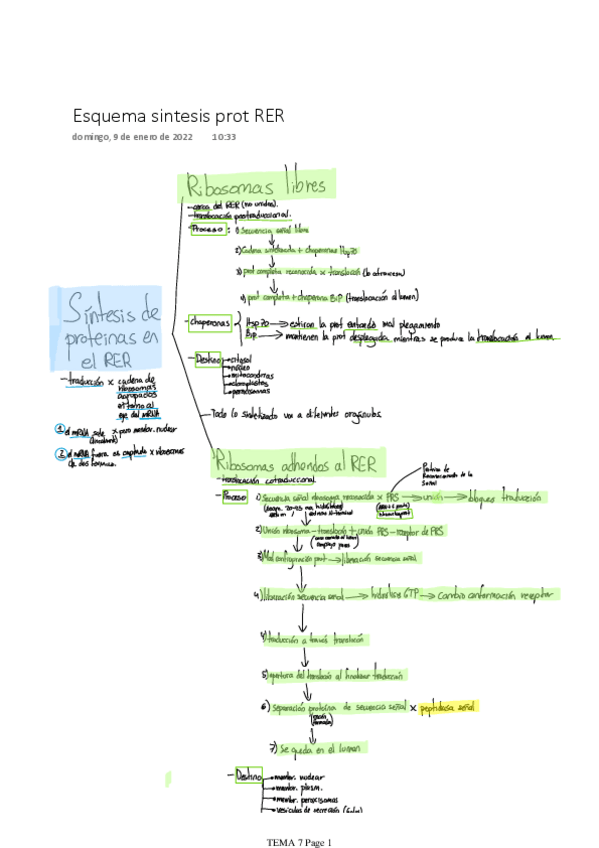 Esquema sintesis prot RER
domingo, 9 de enero de 2022 10:33
Ribosomas libres
- cerca del RER (no unidos).
- translocación postraduccional.
- Proceso: 1) Secuencia señal libre
2) Cadena sintetizada + chaperonas Hsp70
3) prot completa reconocida x translocón (lo atraviesa)
4) prot completa + chaperona BiP (translocación al lumen)
- chaperonas
Hsp70 → estiran la prot evitando mal plegamiento
BiP → mantienen la prot desplegada mientras se produce la translocación al lumen
- Destino
citosol
núcleo
mitocondrias
cloroplastos
peroxisomas
Todo lo sintetizado va a diferentes orgánulos
Síntesis de
proteínas en
el RER
- traducción x cadena de
ribosomas
agrupados
en torno al
eje del mRNA
1 el mRNA sale x poro membr. nuclear
2 el mRNA fuera es captado x ribosomas
de dos formas.
Ribosomas adheridos al RER
- translocación cotraduccional
- Proceso 1) Secuencia señal reconocida x PRS → unión → bloquea traducción
Partícula de
Reconocimiento de la
Señal
2) Unión ribosoma - translocón + unión PRS - receptor de PRS
3) Mal configuración prot → liberación secuencia señal
4) liberación secuencia señal → hidrólisis GTP → Cambio conformación receptor
4) traducción a través translocón
5) apertura del translocón al finalizar traducción
6) Separación proteína de secuencia señal x peptidasa señal
7) Se queda en el lumen
- Destino
membr. nuclear
membr. plasm.
membr. peroxisomas
vesículas de secreción
TEMA 7 Page 1